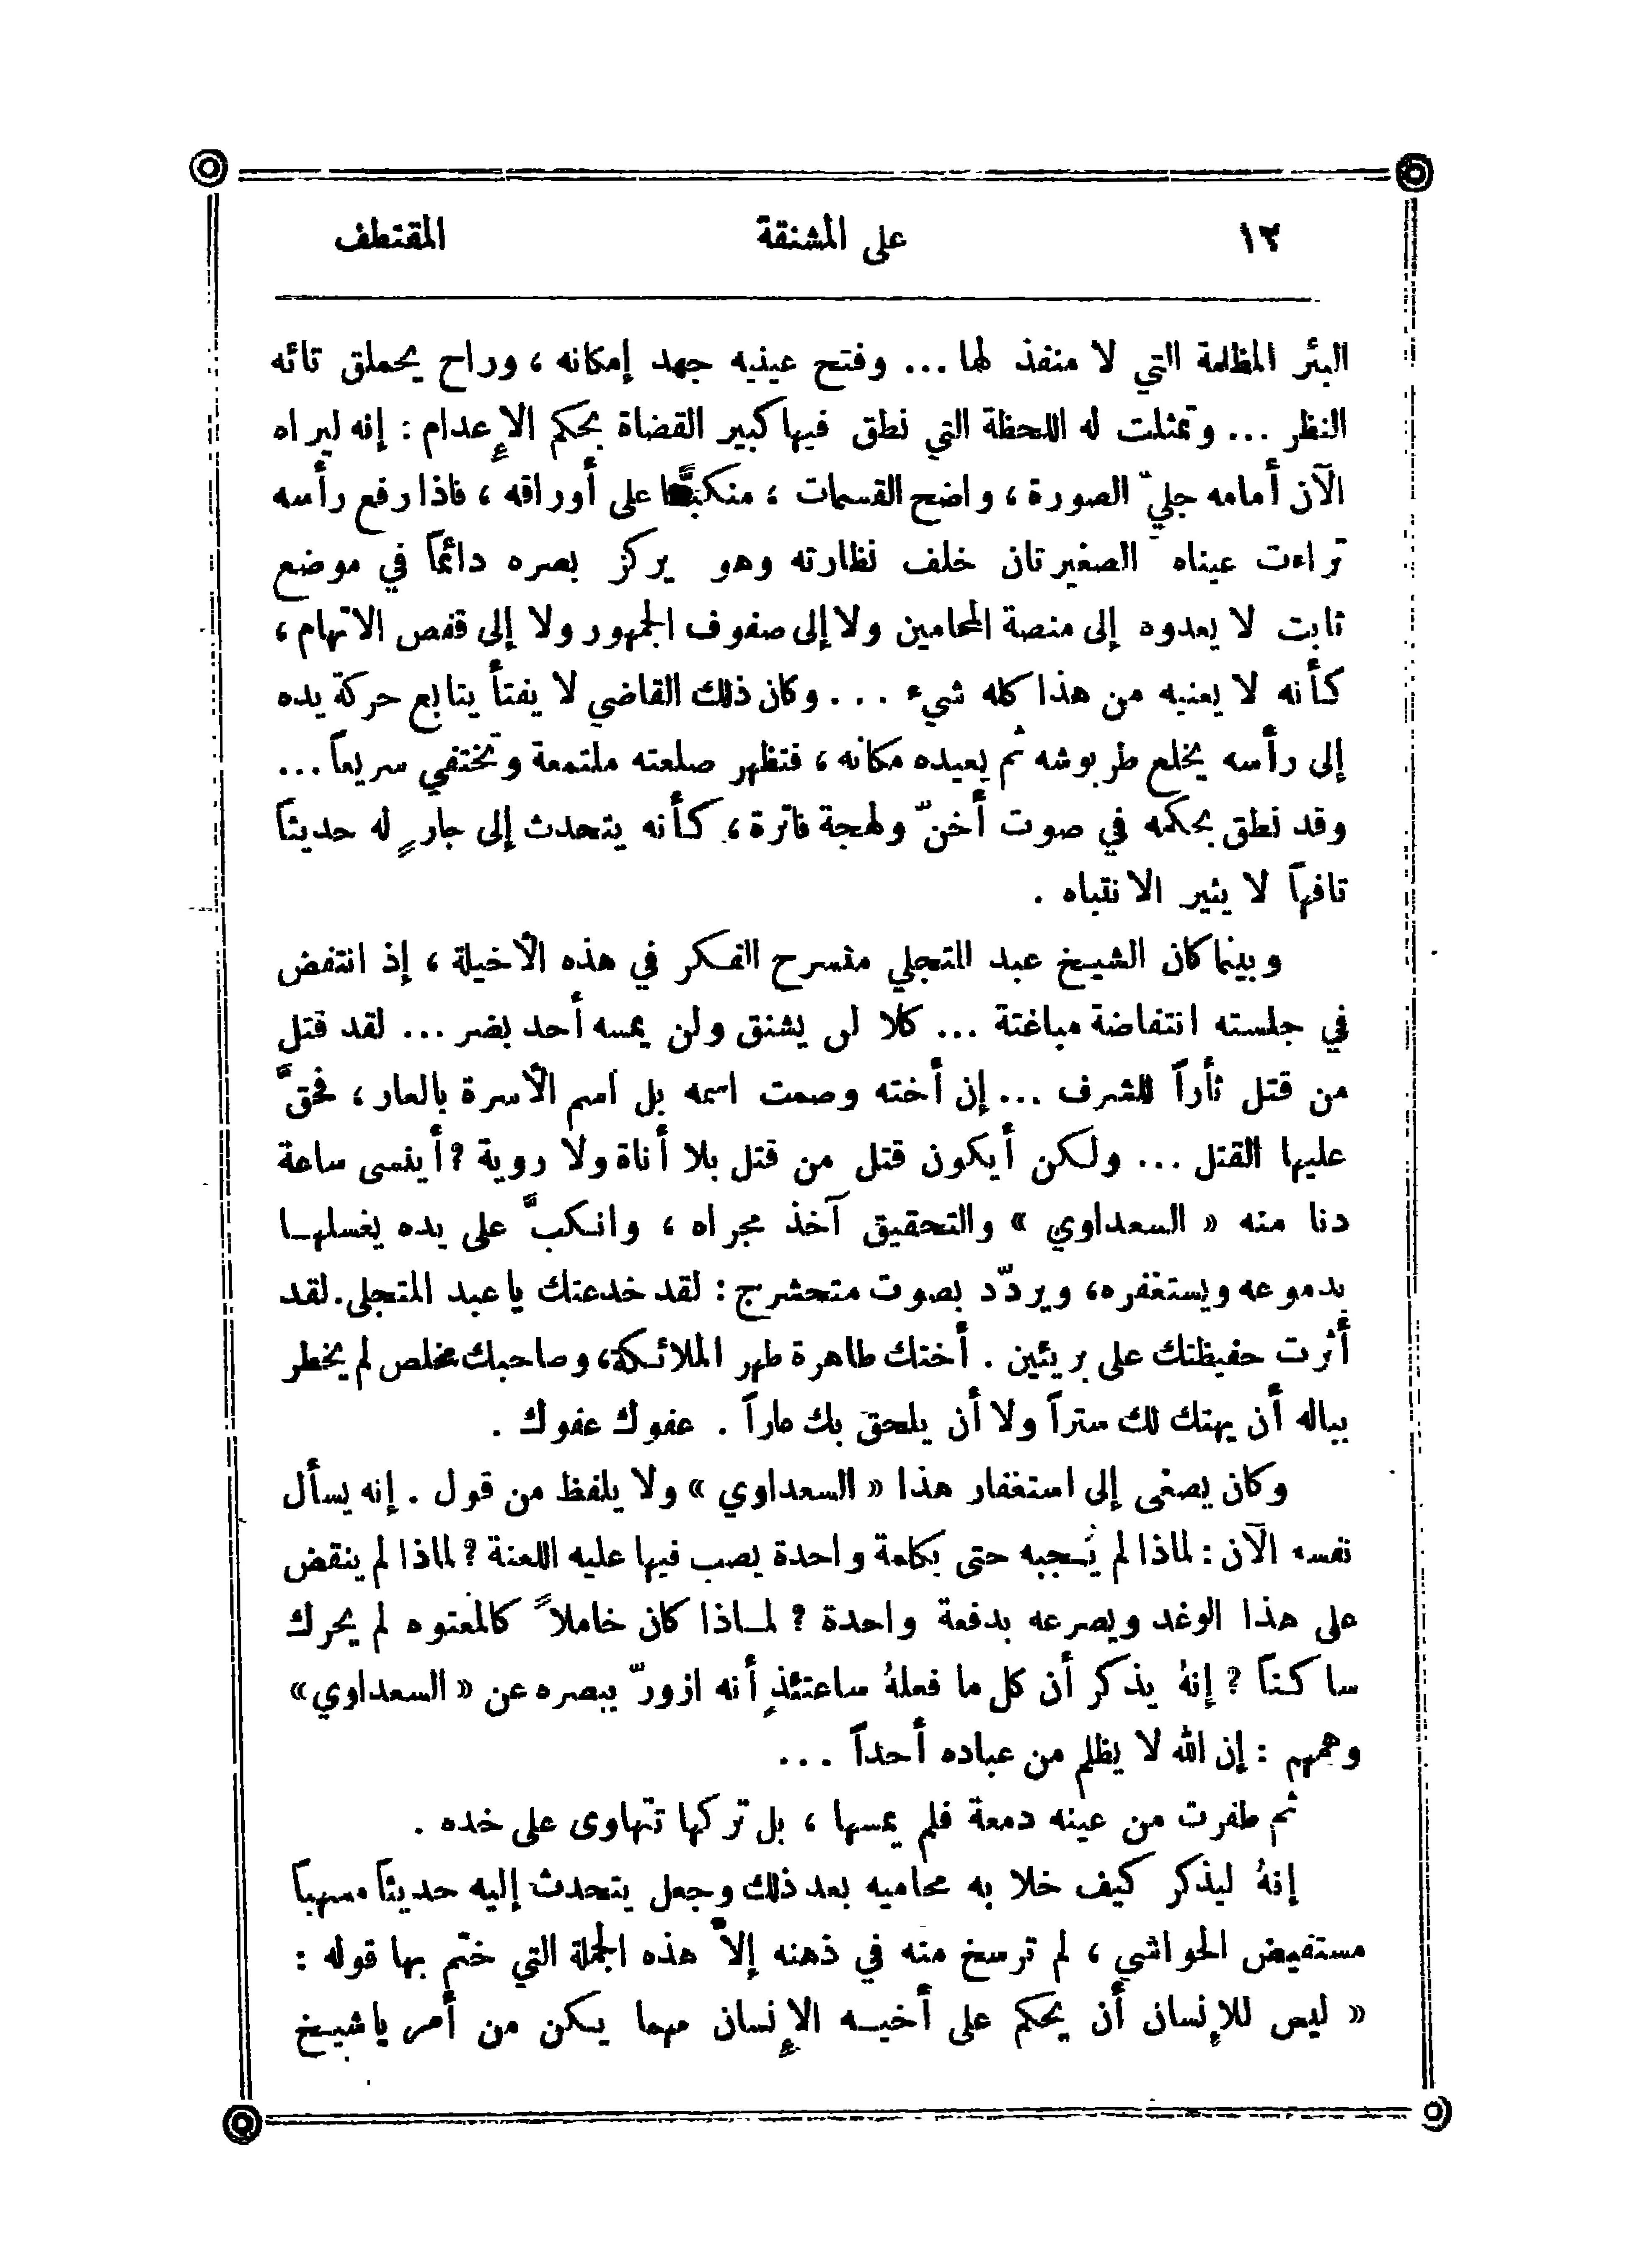 ١٢ على المشنقة المقتطف
البئر المظلمة التي لا منفذ لها ... وفتح عينيه جهد إمكانه ، وراح يحملق تائه
النظر ... وتمثلت له اللحظة التي نطق فيها كبير القضاة بحكم الإعدام : إنه ليراه
الآن أمامه جليّ الصورة ، واضح القسمات ، منكبًّا على أوراقه ، فاذا رفع رأسه
تراءت عيناه الصغيرتان خلف نظارته وهو يركز بصره دائماً في موضع
ثابت لا يعدوه إلى منصة المحامين ولا إلى صفوف الجمهور ولا إلى قفص الاتهام ،
كأنه لا يعنيه من هذا كله شيء ... وكان ذلك القاضي لا يفتأ يتابع حركة يده
إلى رأسه يخلع طربوشه ثم يعيده مكانه ، فتظهر صلعته ملتمعة وتختفي سريعاً ...
وقد نطق بحكمه في صوت أخنّ ولهجة فاترة ، كأنه يتحدث إلى جارٍ له حديثاً
تافهاً لا يثير الانتباه .
وبينما كان الشيخ عبد المتجلي منسرح الفكر في هذه الأخيلة ، إذ انتفض
في جلسته انتفاضة مباغتة ... كلا لن يشنق ولن يمسه أحد بضر ... لقد قتل
من قتل ثأراً للشرف ... إن أخته وصمت اسمه بل اسم الأسرة بالعار ، فحقَّ
عليها القتل ... ولكن أيكون قتل من قتل بلا أناة ولا روية ? أينسى ساعة
دنا منه « السعداوي » والتحقيق آخذ مجراه ، وانكبَّ على يده يغسلها
بدموعه ويستغفره، ويردّد بصوت متحشرج : لقد خدعتك يا عبد المتجلي. لقد
أثرت حفيظتك على بريئين . أختك طاهرة طهر الملائكة، وصاحبك مخلص لم يخطر
بباله أن يهتك لك ستراً ولا أن يلحق بك عاراً . عفوك عفوك .
وكان يصغى إلى استغفار هذا « السعداوي » ولا يلفظ من قول . إنه يسأل
نفسه الآن : لماذا لم يُجبه حتى بكلمة واحدة يصب فيها عليه اللعنة ? لماذا لم ينقض
على هذا الوغد ويصرعه بدفعة واحدة ? لماذا كان خاملاً كالمعتوه لم يحرك
ساكناً ? إنهُ يذكر أن كل ما فعلهُ ساعتئذٍ أنه ازورّ ببصره عن « السعداوي »
وهمهم : إن الله لا يظلم من عباده أحداً ...
ثم طفرت من عينه دمعة فلم يمسها ، بل تركها تتهاوى على خده .
إنهُ ليذكر كيف خلا به محاميه بعد ذلك وجعل يتحدث إليه حديثاً مسهباً
مستفيض الحواشي ، لم ترسخ منه في ذهنه إلاَّ هذه الجملة التي ختم بها قوله :
« ليس للإنسان أن يحكم على أخيه الإنسان مهما يكن من أمر يا شيخ